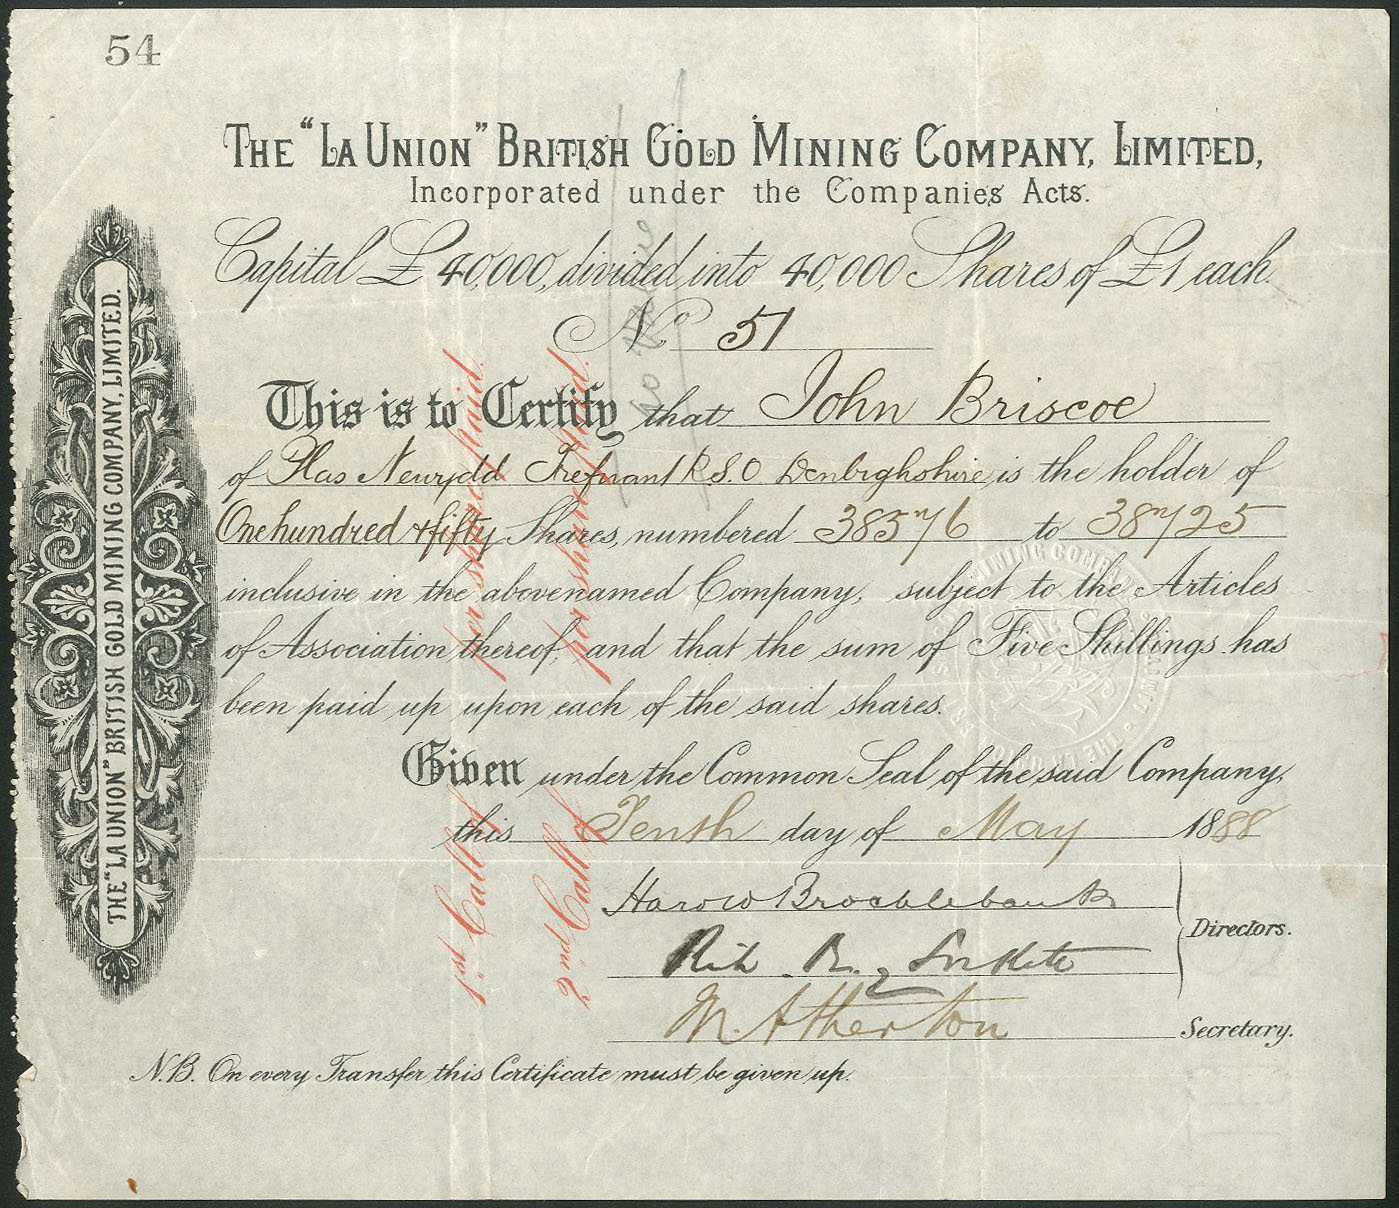 54
THE "LA UNION" BRITISH GOLD MINING COMPANY, LIMITED,
Incorporated under the Companies Acts.
Capital £40,000, divided into 40,000 Shares of £1 each.
No. 51
This is to Certify that John Briscoe
of Plas Newydd Trefnant R.S.O Denbighshire is the holder of
One hundred & fifty Shares, numbered 38576 to 38725
inclusive in the abovenamed Company, subject to the Articles
of Association thereof, and that the sum of Five Shillings has
been paid up upon each of the said shares.
Given under the Common Seal of the said Company,
this Tenth day of May 1888
Harold Brocklebank
Directors.
M. Atherton
Secretary.
N.B. On every Transfer this Certificate must be given up.
THE "LA UNION" BRITISH GOLD MINING COMPANY, LIMITED.
1st Call of per share paid.
2nd Call of per share paid.
no
MINING COMPANY LIMITED · THE LA UNION BRITISH